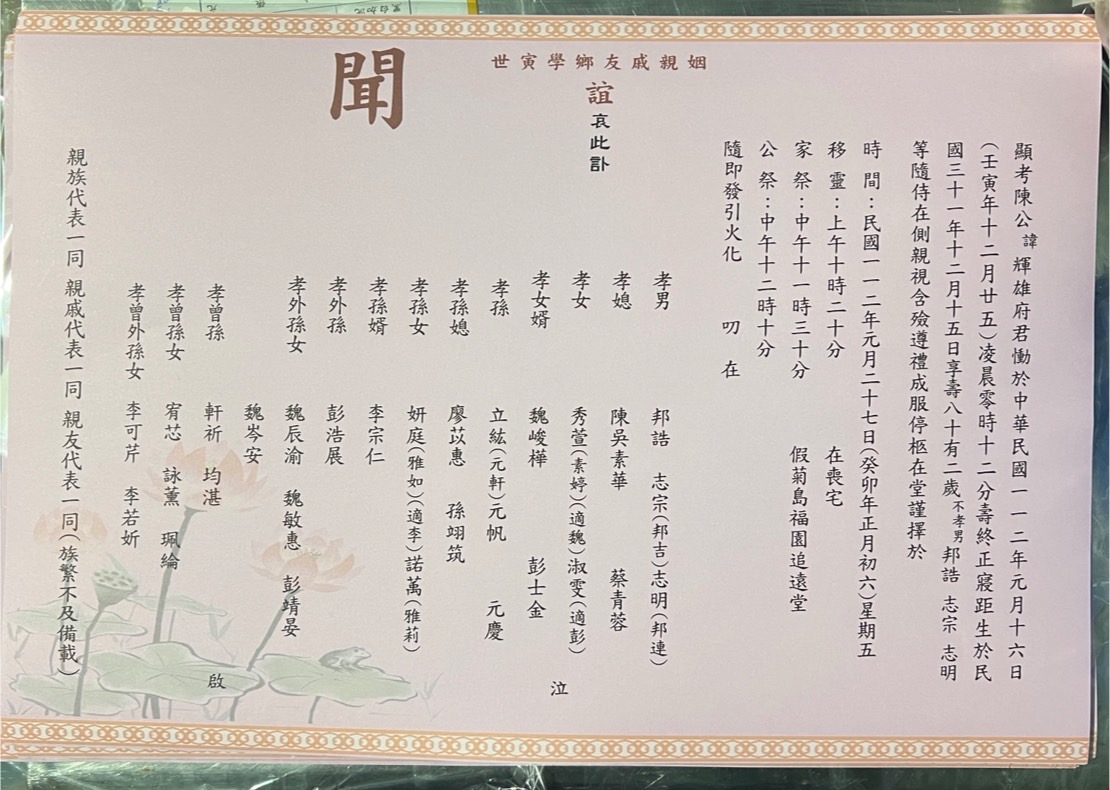 顯考陳公諱輝雄府君慟於中華民國一一二年元月十六日
(壬寅年十二月廿五)凌晨零時十二分壽終正寢距生於民
國三十一年十二月十五日享壽八十有二歲不孝男邦誥 志宗 志明
等隨侍在側親視含殮遵禮成服停柩在堂謹擇於
時間:民國一一二年元月二十七日(癸卯年正月初六)星期五
移靈:上午十時二十分 在喪宅
家祭:中午十一時三十分 假菊島福園追遠堂
公祭:中午十二時十分
隨即發引火化 叨在
姻親戚友鄉學寅世
誼哀此訃
聞
孝男 邦誥 志宗(邦吉)志明(邦連)
孝媳 陳吳素華 蔡青蓉
孝女 秀萱(素婷)(適魏)淑雯(適彭)
孝女婿 魏峻樺 彭士金
泣
孝孫 立紘(元軒)元帆 元慶
孝孫媳 廖苡惠 孫翊筑
孝孫女 妍庭(雅如)(適李)諾萬(雅莉)
孝孫婿 李宗仁
孝外孫 彭浩展
孝外孫女 魏辰渝 魏敏惠 彭靖晏
魏岑安
孝曾孫 軒祈 均湛
啟
孝曾孫女 宥芯 詠薰 珮綸
孝曾外孫女 李可芹 李若妡
親族代表一同 親戚代表一同 親友代表一同(族繁不及備載)